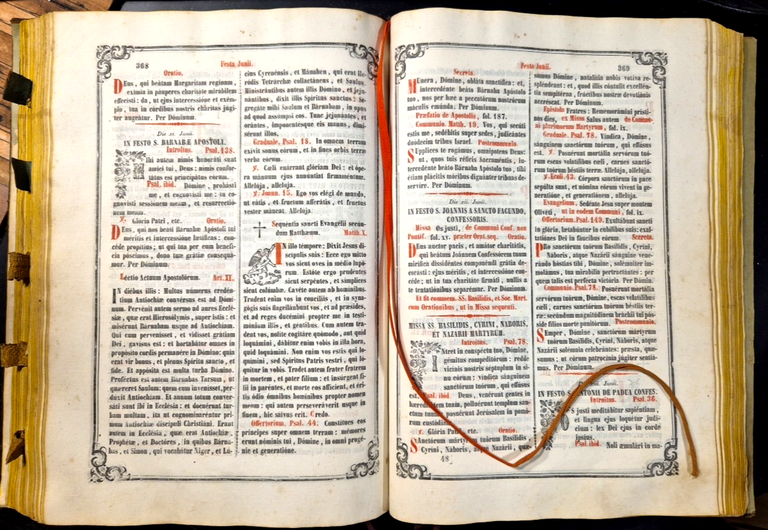 368
Festa Junii.
Oratio.
Deus, qui beátam Margarítam regínam,
exímia in páuperes charitáte mirábilem
effecísti: da, ut ejus intercessióne et exém-
plo, tua in córdibus nostris cháritas júgi-
ter augeátur. Per Dóminum.
Die xi Junii.
IN FESTO S. BARNABÆ APOSTOLI.
Introitus. Psal. 138.
Mihi autem nimis honoráti sunt
amíci tui, Deus: nimis confor-
tátus est principátus eórum.
Psal. ibid. Dómine, probásti
me, et cognovísti me: tu co-
gnovísti sessiónem meam, et resurrectió-
nem meam.
℣. Glória Patri, etc. Oratio.
Deus, qui nos beáti Bárnabæ Apóstoli tui
méritis et intercessióne lætíficas: con-
céde propítius; ut qui tua per eum benefí-
cia póscimus, dono tuæ grátiæ consequá-
mur. Per Dóminum.
Léctio Actuum Apostolórum. Act. 11.
In diébus illis: Multus númerus credén-
tium Antiochíæ convérsus est ad Dómi-
num. Pervénit autem sermo ad aures Ecclé-
siæ, quæ erat Hierosólymis, super istis: et
misérunt Bárnabam usque ad Antiochíam.
Qui cum pervenísset, et vidísset grátiam
Dei, gavísus est: et hortabátur omnes in
propósito cordis permanére in Dómino: quia
erat vir bonus, et plenus Spíritu sancto, et
fide. Et appósita est multa turba Dómino.
Proféctus est autem Bárnabas Tarsum, ut
quǽreret Saulum: quem cum invenísset, per-
dúxit Antiochíam. Et annum totum conver-
sáti sunt ibi in Ecclésia: et docuérunt tur-
bam multam, ita ut cognominaréntur pri-
mum Antiochíæ discípuli Christiáni. Erant
autem in Ecclésia, quæ erat Antiochíæ,
Prophétæ, et Doctóres, in quibus Bárna-
bas, et Simon, qui vocabátur Niger, et Lú-
cius Cyrenénsis, et Mánahen, qui erat He-
ródis Tetrárchæ collactáneus, et Saulus.
Ministrántibus autem illis Dómino, et jeju-
nántibus, dixit illis Spíritus sanctus: Se-
gregáte mihi Saulum et Bárnabam, in opus
ad quod assúmpsi eos. Tunc jejunántes, et
orántes, imponentésque eis manus, dimi-
sérunt illos.
Graduale. Psal. 18. In omnem terram
exívit sonus eórum, et in fines orbis terræ
verba eórum.
℣. Cœli enárrant glóriam Dei: et ópe-
ra mánuum ejus annúntiat firmaméntum.
Allelúja, allelúja.
℣. Joann. 15. Ego vos elégi de mundo,
ut eátis, et fructum afferátis, et fructus
vester máneat. Allelúja.
✠ Sequéntia sancti Evangélii secún-
dum Matthæum. Matth. X.
In illo témpore: Dixit Jesus di-
scípulis suis: Ecce ego mitto
vos sicut oves in médio lupó-
rum. Estóte ergo prudéntes
sicut serpéntes, et símplices
sicut colúmbæ. Cavéte autem ab homínibus.
Tradent enim vos in concíliis, et in syna-
gógis suis flagellábunt vos, et ad prǽsides,
et ad reges ducémini propter me in testi-
mónium illis, et géntibus. Cum autem tra-
dent vos, nolíte cogitáre quómodo, aut quid
loquámini, dábitur enim vobis in illa hora,
quid loquámini. Non enim vos estis qui lo-
químini, sed Spíritus Patris vestri, qui ló-
quitur in vobis. Tradet autem frater fratrem
in mortem, et pater fílium: et insúrgent fí-
lii in paréntes, et morte eos affícient, et éri-
tis ódio ómnibus homínibus propter nomen
meum: qui autem perseveráverit usque in
finem, hic salvus erit. Credo.
Offertorium. Psal. 44. Constítues eos
príncipes super omnem terram: mémores
erunt nóminis tui, Dómine, in omni progé-
nie et generatióne.
Festa Junii.
369
Secreta.
Múnera, Dómine, obláta sanctífica: et,
intercedénte beáto Bárnaba Apóstolo
tuo, nos per hæc a peccatórum nostrórum
máculis emúnda. Per Dóminum.
Præfatio de Apostolis, fol. 187.
Communio. Matth. 19. Vos, qui secúti
estis me, sedébitis super sedes, judicántes
duódecim tribus Israel. Postcommunio.
Súpplices te rogámus, omnípotens Deus:
ut, quos tuis réficis Sacraméntis, in-
tercedénte beáto Bárnaba Apóstolo tuo, tibi
étiam plácitis móribus dignánter tríbuas de-
servíre. Per Dóminum.
Die xii Junii.
IN FESTO S. JOANNIS A SANCTO FACUNDO,
CONFESSORIS.
Missa Os justi, de Communi Conf. non
Pontif. fol. xv. præter Orat. seq. Oratio.
Deus auctor pacis, et amátor charitátis,
qui beátum Joánnem Confessórem tuum
mirífica dissidéntes componéndi grátia de-
corásti: ejus méritis, et intercessióne con-
céde; ut in tua charitáte firmáti, nullis a
te tentatiónibus separémur. Per Dóminum.
Et fit commem. SS. Basilidis, et Soc. Mart.
cum Orationibus, ut in Missa sequenti.
MISSA SS. BASILIDIS, CYRINI, NABORIS,
ET NAZARII MARTYRUM.
Introitus. Psal. 78.
Intret in conspéctu tuo, Dómine,
gémitus compeditórum: redde
vicínis nostris séptuplum in si-
nu eórum: víndica sánguinem
sanctórum tuórum, qui effúsus
est. Psal. ibid. Deus, venérunt gentes in
hereditátem tuam, polluérunt templum san-
ctum tuum: posuérunt Jerúsalem in pomó-
rum custódiam.
℣. Glória Patri, etc. Oratio.
Sanctórum mártyrum tuórum Basílidis,
Cyríni, Náboris, atque Nazárii, quǽ-
48
sumus Dómine, natalítia nobis votíva re-
spléndeant: et, quod illis cóntulit excellén-
tia sempitérna, frúctibus nostræ devotiónis
accréscat. Per Dóminum.
Epistola Fratres: Rememorámini prísti-
nos dies, ex Missa Salus autem de Commu-
ni plurimorum Martyrum, fol. ix.
Graduale. Psal. 78. Víndica, Dómine,
sánguinem sanctórum tuórum, qui effúsus
est. ℣. Posuérunt mortália servórum tuó-
rum escas volatílibus cœli, carnes sanctó-
rum tuórum béstiis terræ. Allelúja, allelúja.
℣. Eccli. 44. Córpora sanctórum in pace
sepúlta sunt, et nómina eórum vivent in ge-
neratióne, et generatiónem. Allelúja.
Evangelium. Sedénte Jesu super montem
Olivéti, ut in eodem Communi, fol. ix.
Offertorium. Psal. 149. Exultábunt sancti
in glória, lætabúntur in cubílibus suis: exal-
tatiónes Dei in fáucibus eórum. Secreta.
Pro sanctórum tuórum Basílidis, Cyríni,
Náboris, atque Nazárii sánguine vene-
rándo hóstias tibi, Dómine, solémniter im-
molámus, tua mirabília pertractántes: per
quem talis est perfécta victória. Per Dóminum.
Communio. Psal. 78. Posuérunt mortália
servórum tuórum, Dómine, escas volatílibus
cœli, carnes sanctórum tuórum béstiis ter-
ræ: secúndum magnitúdinem bráchii tui pós-
side fílios morte punitórum. Postcommunio.
Semper, Dómine, sanctórum mártyrum
tuórum Basílidis, Cyríni, Náboris, atque
Nazárii solémnia celebrántes: præsta, quǽ-
sumus, ut eórum patrocínia júgiter sentiá-
mus. Per Dóminum.
Die xiii Junii.
IN FESTO S. ANTONII DE PADUA CONFES.
Introitus. Psal. 36.
Os justi meditábitur sapiéntiam,
et lingua ejus loquétur judí-
cium: lex Dei ejus in corde
ipsíus.
Psal. ibid. Noli æmulári in ma-